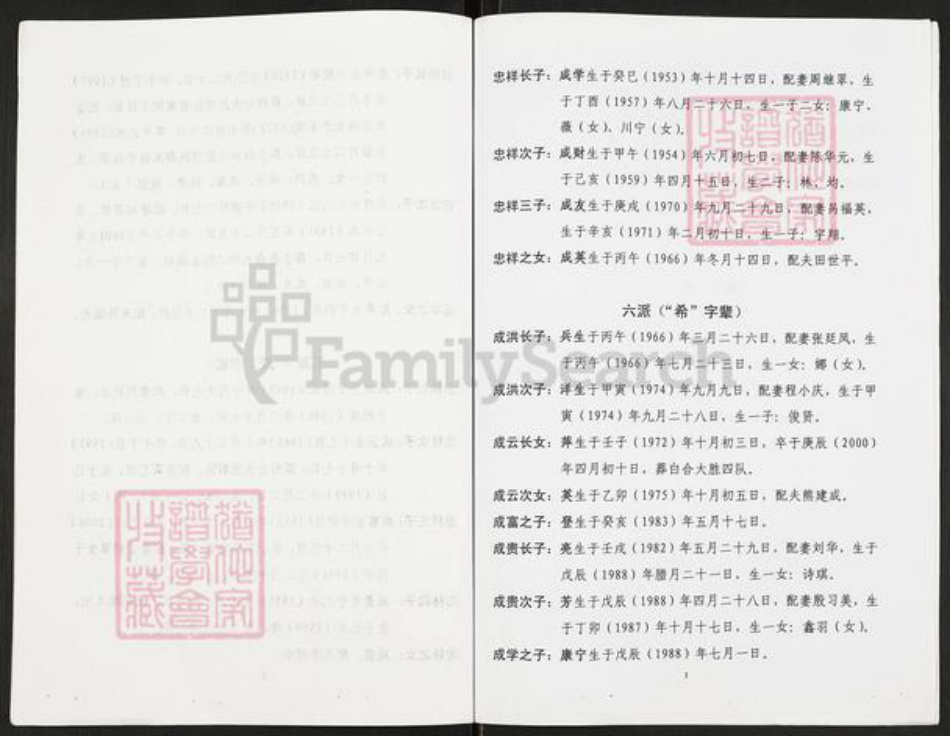 忠祥长子：成学生于癸巳（1953）年十月十四日，配妻周继翠，生
于丁酉（1957）年八月二十六日，生一子二女：康宁、
薇（女）、川宁（女）。
忠祥次子：成财生于甲午（1954）年六月初七日，配妻陈华元，生
于己亥（1959）年四月十五日，生二子：林、均。
忠祥三子：成友生于庚戌（1970）年九月二十九日，配妻吕福英，
生于辛亥（1971）年二月初十日，生一子：宇翔。
忠祥之女：成英生于丙午（1966）年冬月十四日，配夫田世平。
六派（“希”字辈）
成洪长子：兵生于丙午（1966）年三月二十六日，配妻张廷凤，生
于丙午（1966）年七月二十三日，生一女：娜（女）。
成洪次子：洋生于甲寅（1974）年九月九日，配妻程小庆，生于甲
寅（1974）年九月二十八日，生一子：俊贤。
成云长女：萍生于壬子（1972）年十月初三日，卒于庚辰（2000）
年四月初十日，葬白合大胜四队。
成云次女：英生于乙卯（1975）年十月初五日，配夫熊建成。
成富之子：登生于癸亥（1983）年五月十七日。
成贵长子：亮生于壬戌（1982）年五月二十九日，配妻刘华，生于
戊辰（1988）年腊月二十一日，生一女：诗琪。
成贵次子：芳生于戊辰（1988）年四月二十八日，配妻殷习美，生
于丁卯（1987）年十月十七日，生一女：鑫羽（女）。
成学之子：康宁生于戊辰（1988）年七月一日。
3
FamilySearch